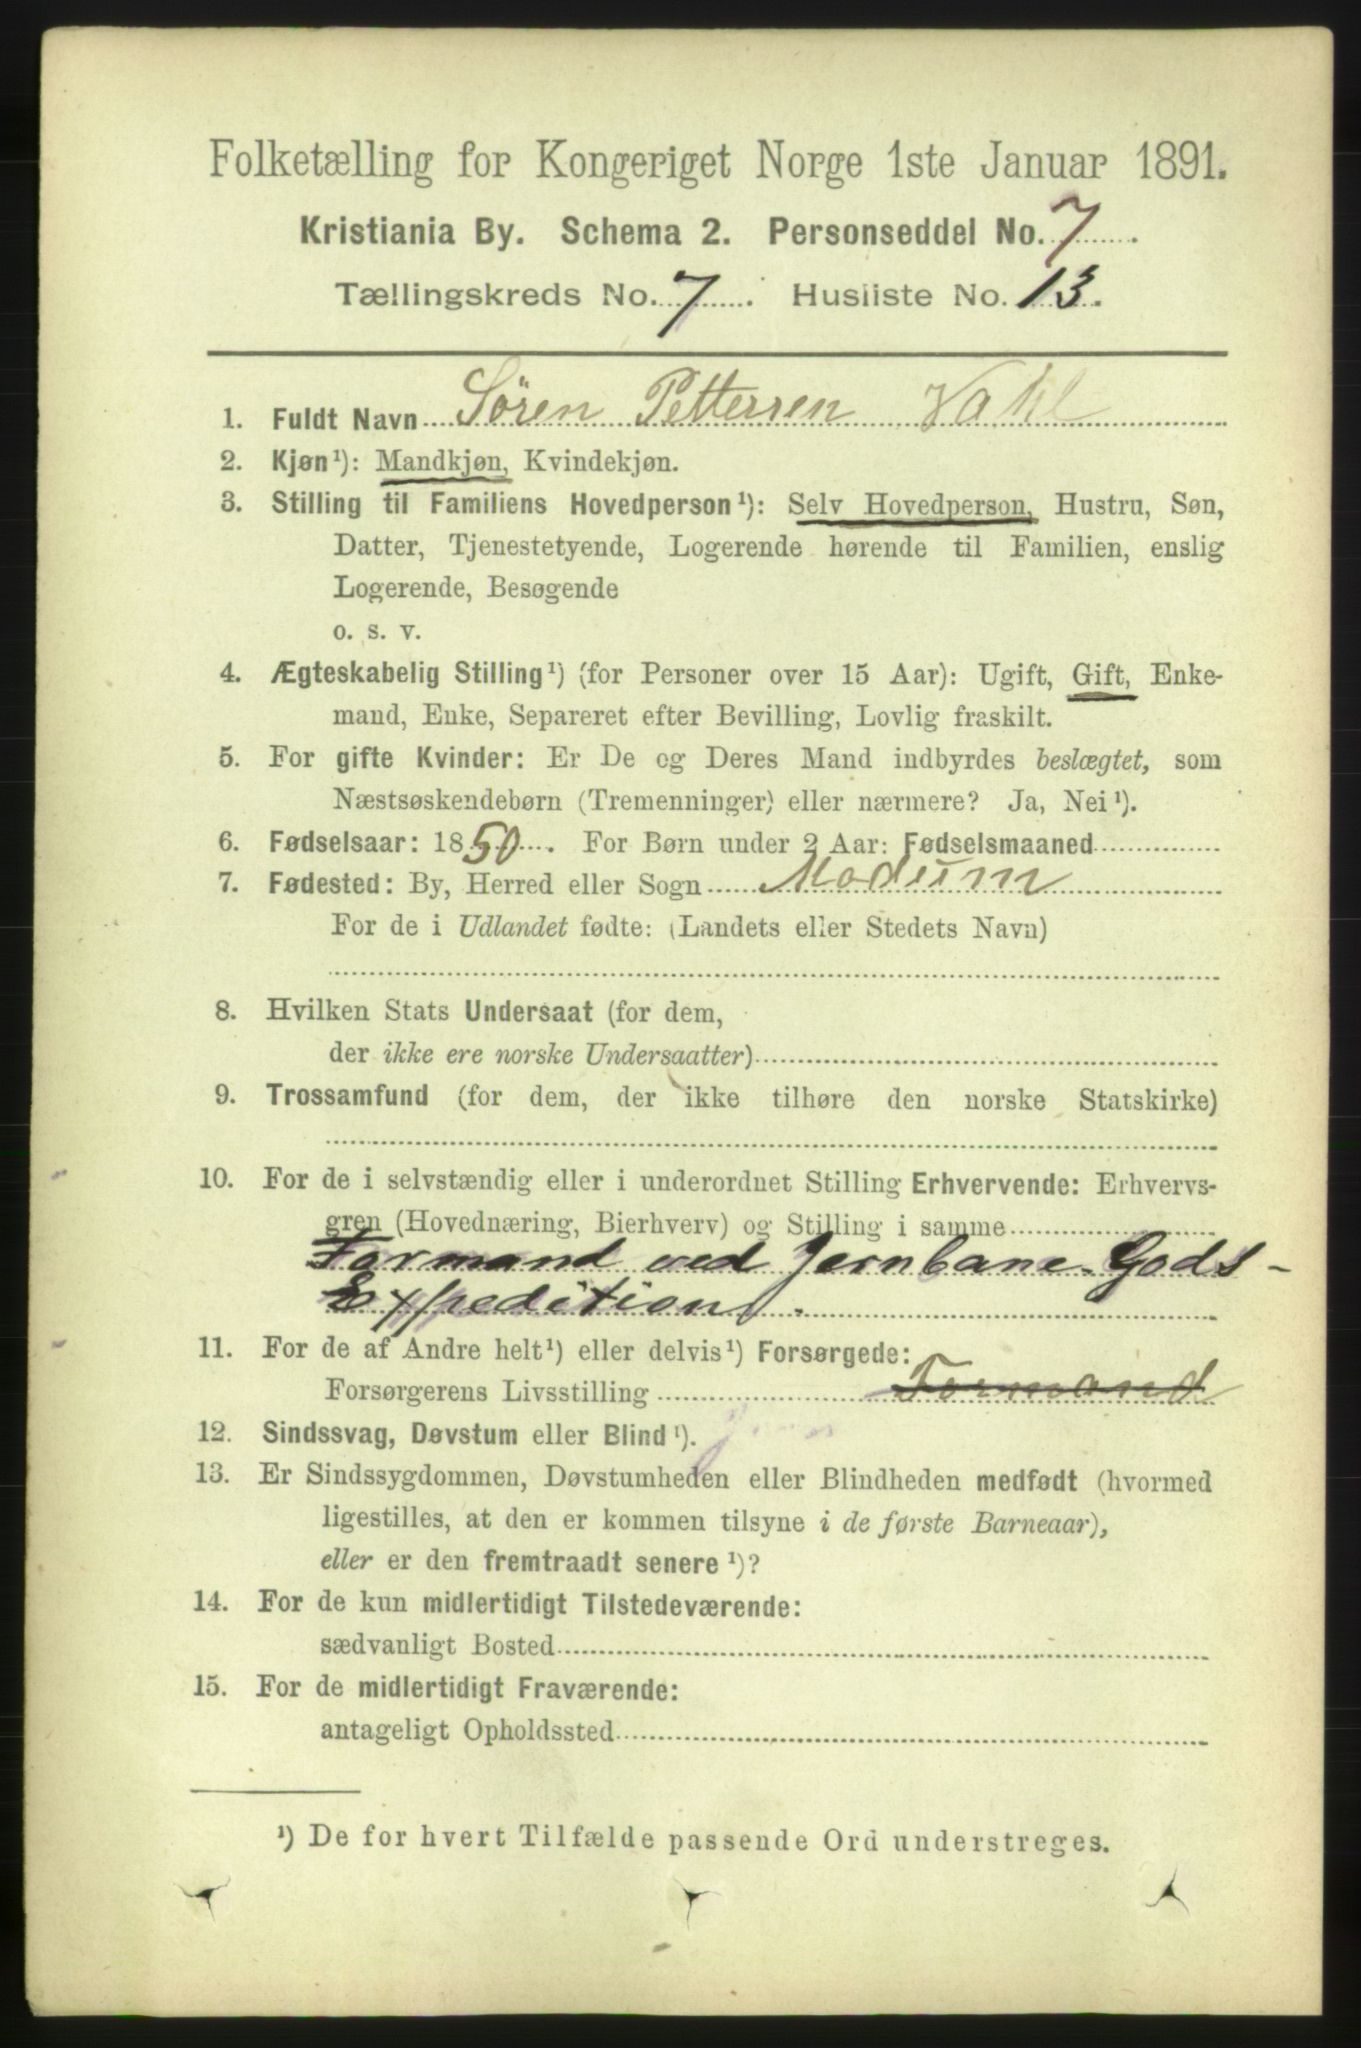 Folketælling for Kongeriget Norge 1ste Januar 1891.
Kristiania By. Schema 2. Personseddel No. 7
Tællingskreds No. 7. Husliste No. 13.
1. Fuldt Navn Søren Pettersen Vahl
2. Kjøn¹): Mandkjøn, Kvindekjøn.
3. Stilling til Familiens Hovedperson¹): Selv Hovedperson, Hustru, Søn,
Datter, Tjenestetyende, Logerende hørende til Familien, enslig
Logerende, Besøgende
o. s. v.
4. Ægteskabelig Stilling¹) (for Personer over 15 Aar): Ugift, Gift, Enke-
mand, Enke, Separeret efter Bevilling, Lovlig fraskilt.
5. For gifte Kvinder: Er De og Deres Mand indbyrdes beslægtet, som
Næstsøskendebørn (Tremenninger) eller nærmere? Ja, Nei¹).
6. Fødselsaar: 1850. For Børn under 2 Aar: Fødselsmaaned
7. Fødested: By, Herred eller Sogn Modum
For de i Udlandet fødte: (Landets eller Stedets Navn)
8. Hvilken Stats Undersaat (for dem,
der ikke ere norske Undersaatter)
9. Trossamfund (for dem, der ikke tilhøre den norske Statskirke)
10. For de i selvstændig eller i underordnet Stilling Erhvervende: Erhvervs-
gren (Hovednæring, Bierhverv) og Stilling i samme
Formand ved Jernbane Gods-
Expedition.
11. For de af Andre helt¹) eller delvis¹) Forsørgede:
Forsørgerens Livsstilling Formand
12. Sindssvag, Døvstum eller Blind¹).
13. Er Sindssygdommen, Døvstumheden eller Blindheden medfødt (hvormed
ligestilles, at den er kommen tilsyne i de første Barneaar),
eller er den fremtraadt senere¹)?
14. For de kun midlertidigt Tilstedeværende:
sædvanligt Bosted
15. For de midlertidigt Fraværende:
antageligt Opholdssted
¹) De for hvert Tilfælde passende Ord understreges.